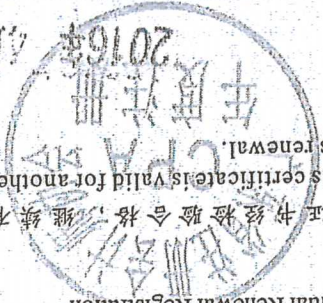 ual Renewal Registration
证书经检验合格,继续有
s certificate is valid for another
s renewal.
CPA
年度注册
2016年